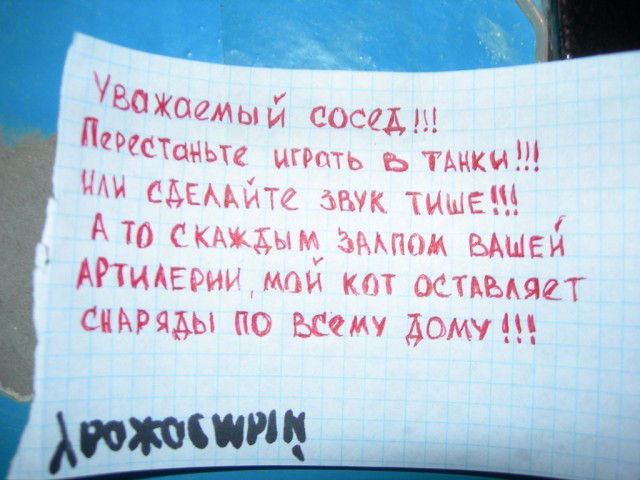 Уважаемый сосед!!!
Перестаньте играть в танки!!!
Или сделайте звук тише!!!
А то скаждым залпом вашей
артилерии, мой кот оставляет
снаряды по всему дому!!!